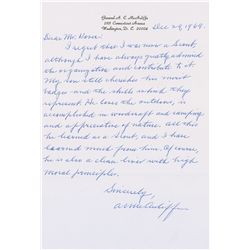 General A. C. McAuliffe
Connecticut Avenue
Washington, D. C. 20008
Dec 29, 1969.
Dear Mr. 
I regret that I was never a Scout,
although I have always greatly admired
the organization and contribute to it.
My son still cherishes his merit
badges and the skills which they
represent. He loves the outdoors, is
accomplished in woodcraft and camping
and appreciative of nature. All this
he learned as a Scout, and I have
learned much from him. Of course,
he is also a clean liver with high
moral principles.
Sincerely,
A C McAuliffe